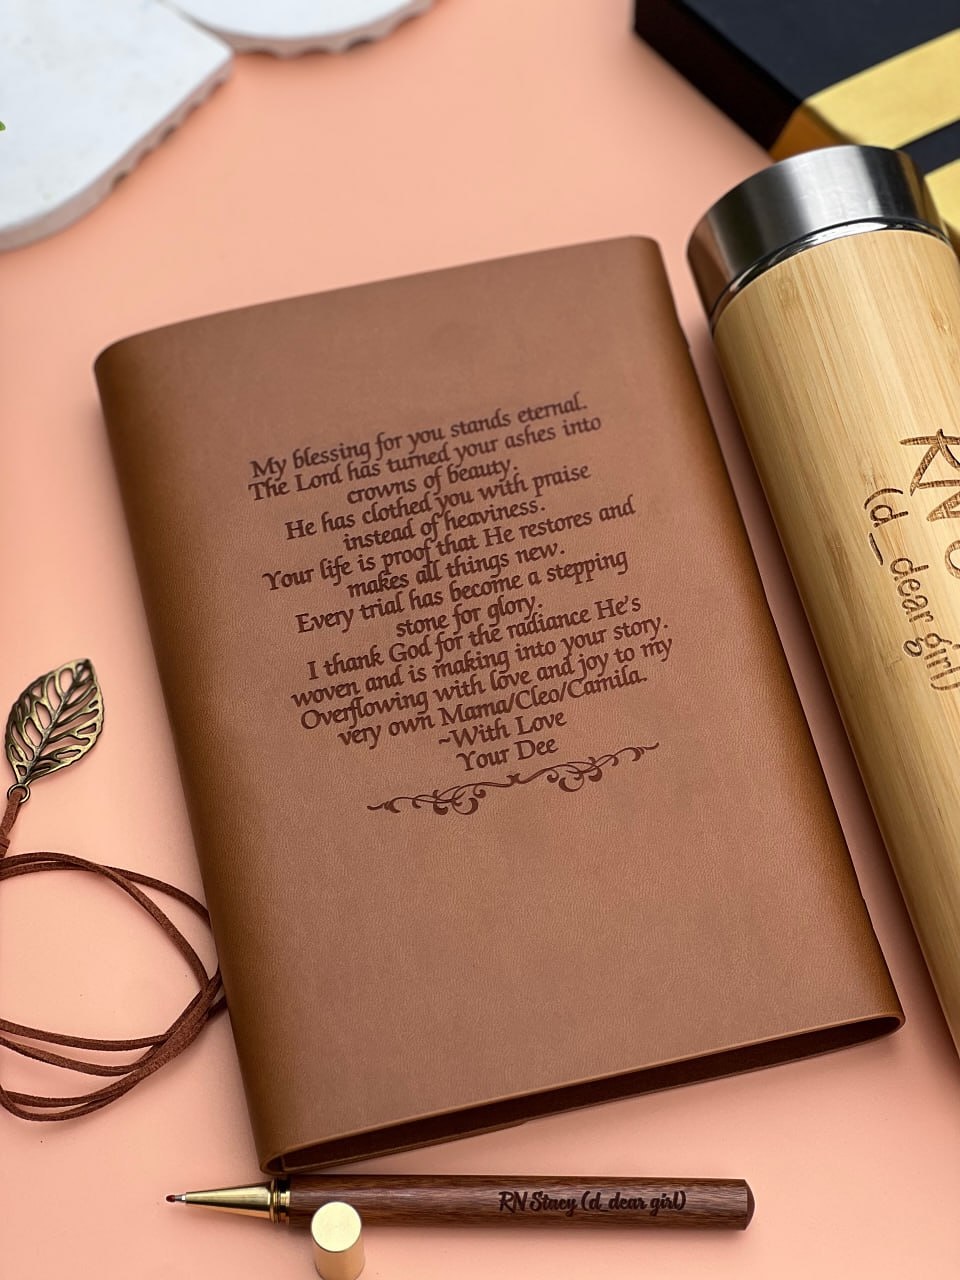 My blessing for you stands eternal.
The Lord has turned your ashes into
crowns of beauty.
He has clothed you with praise
instead of heaviness.
Your life is proof that He restores and
makes all things new.
Every trial has become a stepping
stone for glory.
I thank God for the radiance He's
woven and is making into your story.
Overflowing with love and joy to my
very own Mama/Cleo/Camila.
~With Love
Your Dee
RN
(d_dear girl)
RN Stacy (d_dear girl)